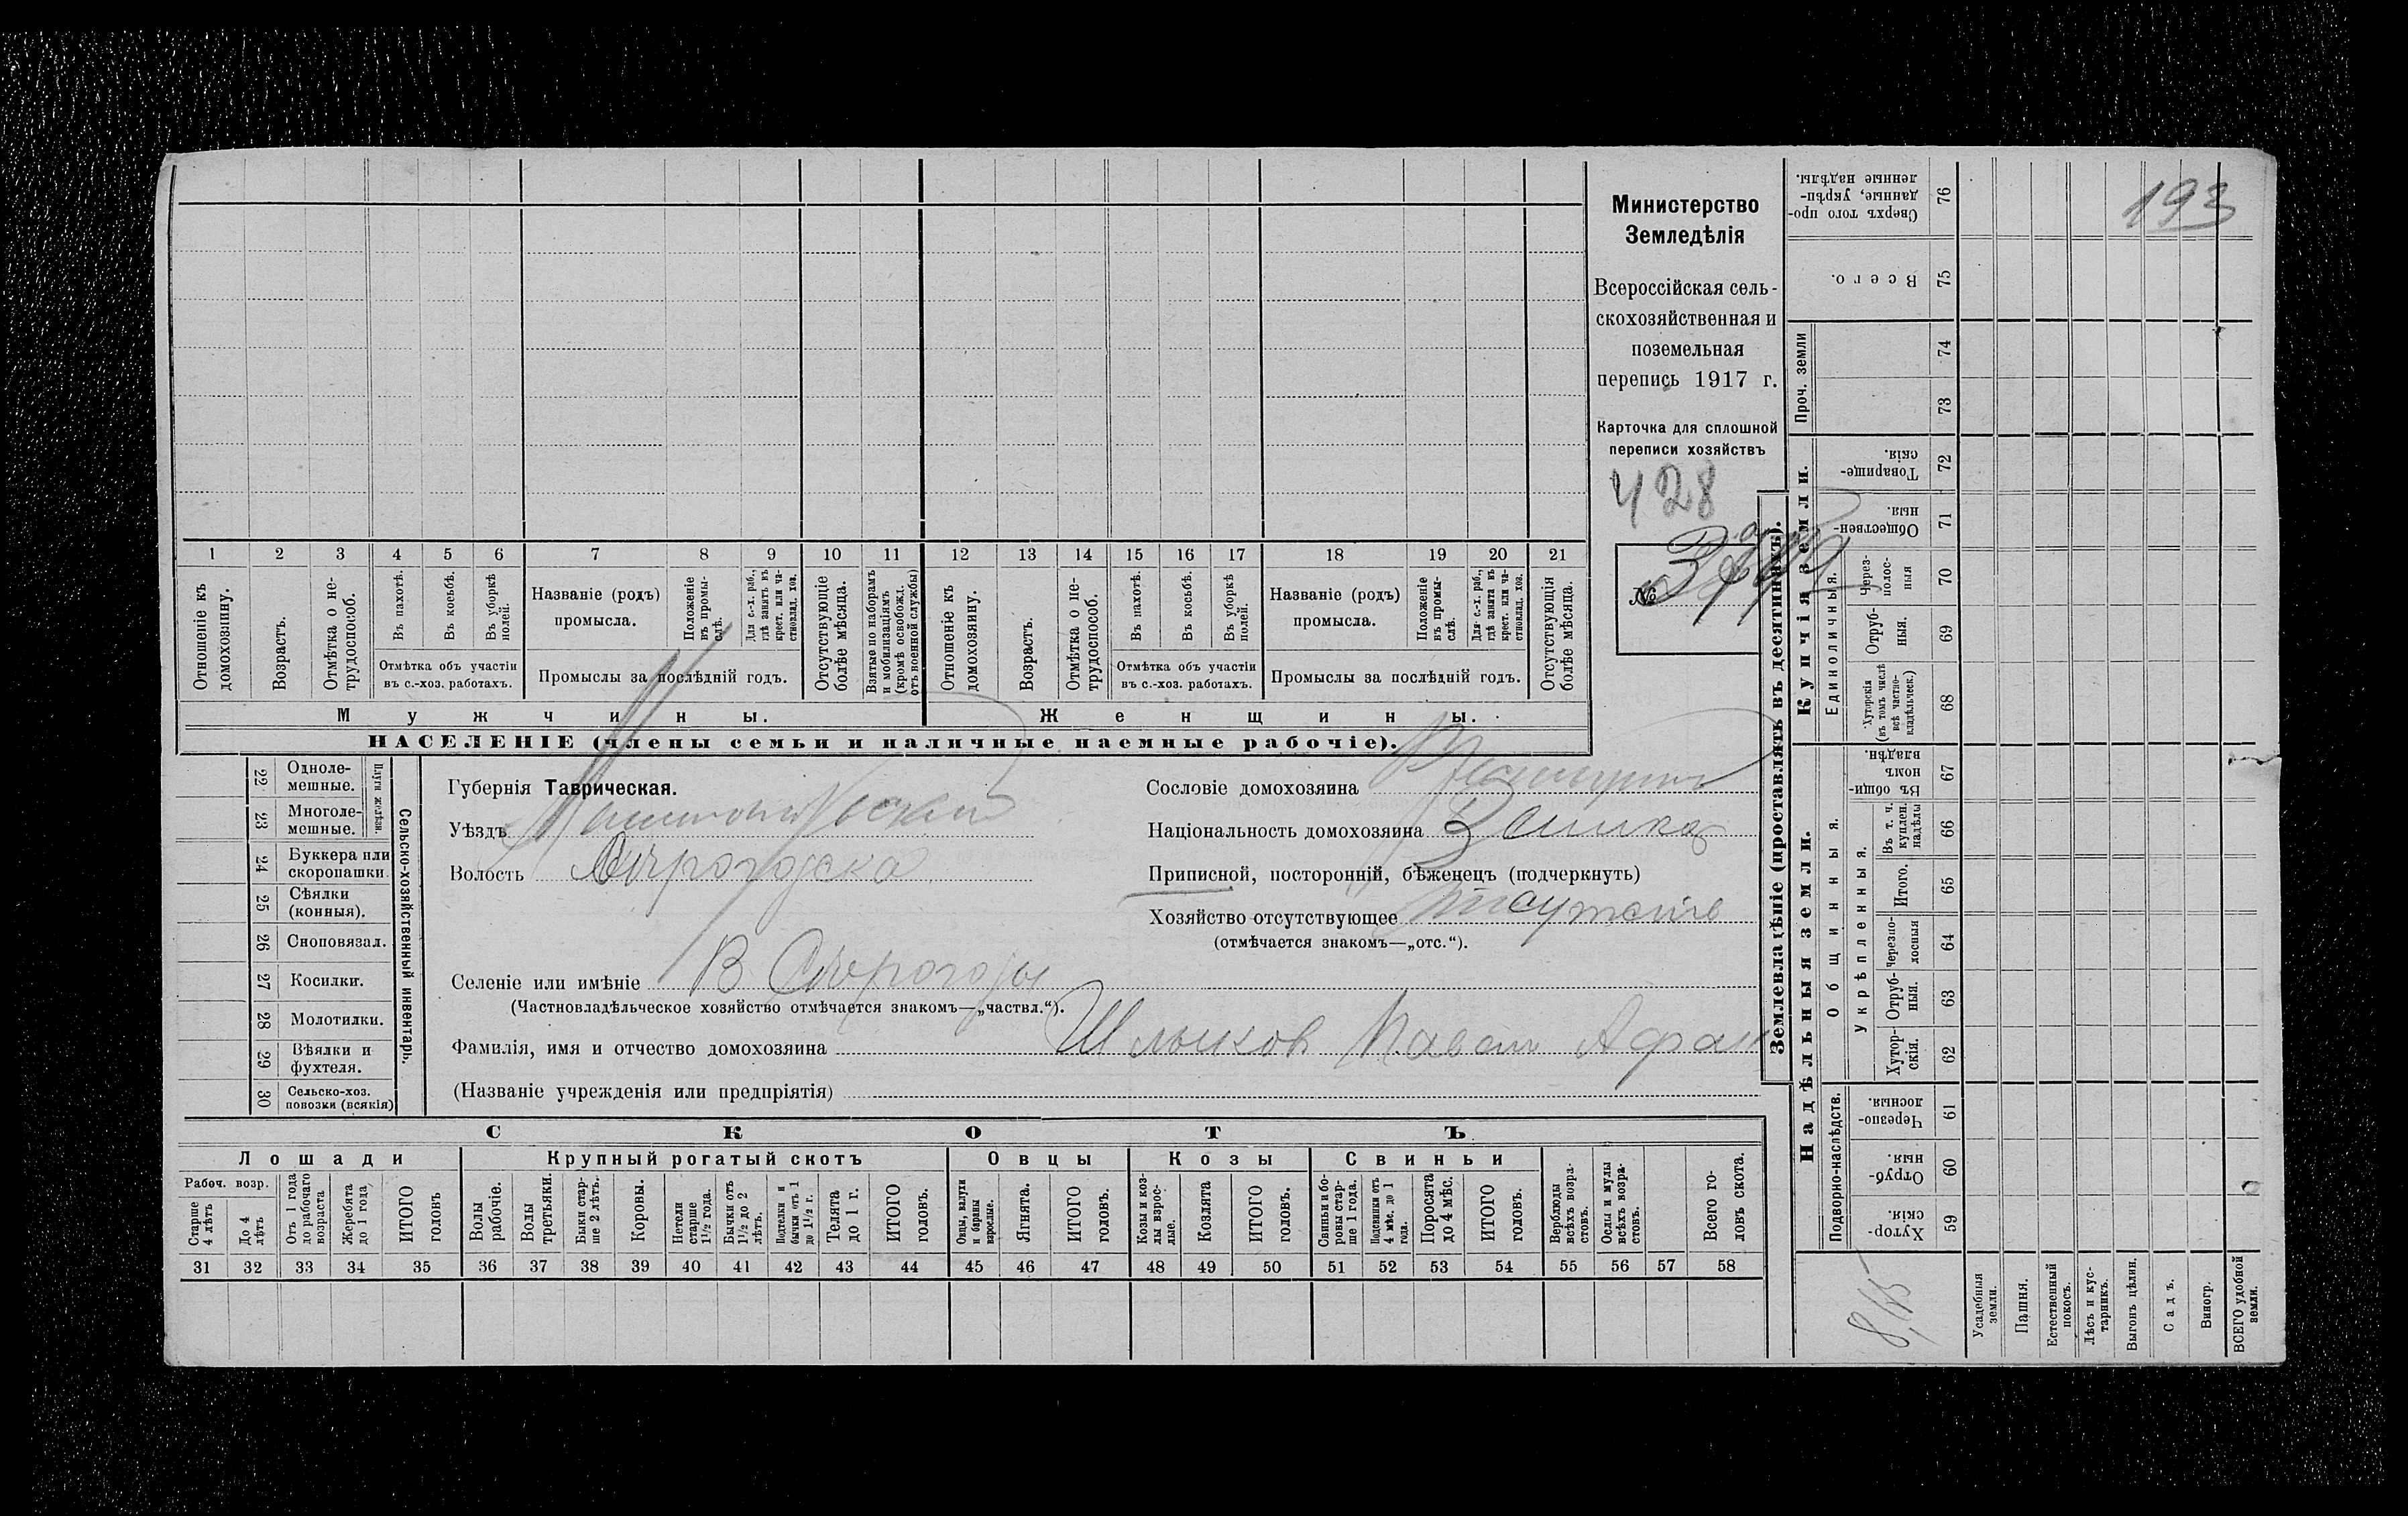 193
Министерство
Земледѣлія
Всероссійская сель-
скохозяйственная и
поземельная
перепись 1917 г.
Карточка для сплошной
переписи хозяйствъ
428
№
1 2 3 4 5 6 7 8 9 10 11 12 13 14 15 16 17 18 19 20 21
Отношеніе къ домохозяину.
Возрастъ.
Отмѣтка о не-трудоспособ.
Въ пахотѣ.
Въ косьбѣ.
Въ уборкѣ полей.
Отмѣтка объ участіи
въ с.-хоз. работахъ.
Названіе (родъ)
промысла.
Положеніе въ промы-слѣ.
Для с.-х. раб., гдѣ занятъ въ крест. или ча-стновлад. хоз.
Промыслы за послѣдній годъ.
Отсутствующіе болѣе мѣсяца.
Взятые по наборамъ и мобилизаціямъ (кромѣ освобожд. отъ военной службы)
Отношеніе къ домохозяину.
Возрастъ.
Отмѣтка о не-трудоспособ.
Въ пахотѣ.
Въ косьбѣ.
Въ уборкѣ полей.
Отмѣтка объ участіи
въ с.-хоз. работахъ.
Названіе (родъ)
промысла.
Положеніе въ промы-слѣ.
Для с.-х. раб., гдѣ занята въ крест. или ча-стновлад. хоз.
Промыслы за послѣдній годъ.
Отсутствующія болѣе мѣсяца.
Мужчины.
Женщины.
НАСЕЛЕНІЕ (члены семьи и наличные наемные рабочіе).
22 Одноле-мешные.
23 Многоле-мешные.
Плуги желѣзн.
24 Буккера или скоропашки
25 Сѣялки (конныя).
26 Сноповязал.
27 Косилки.
28 Молотилки.
29 Вѣялки и фухтеля.
30 Сельско-хоз. повозки (всякія)
Сельско-хозяйственный инвентарь.
Губернія Таврическая.
Уѣздъ
Волость
Селеніе или имѣніе В. Сѣрогозы
(Частновладѣльческое хозяйство отмѣчается знакомъ—„частвл.“).
Фамилія, имя и отчество домохозяина Павел Афан
(Названіе учрежденія или предпріятія)
Сословіе домохозяина
Національность домохозяина
Приписной, посторонній, бѣженецъ (подчеркнуть)
Хозяйство отсутствующее
(отмѣчается знакомъ—„отс.“).
СКОТЪ
Лошади
Крупный рогатый скотъ
Овцы
Козы
Свиньи
Рабоч. возр.
Старше 4 лѣтъ
До 4 лѣтъ
Отъ 1 года до рабочаго возраста
Жеребята до 1 года
ИТОГО головъ
Волы рабочіе.
Волы третьяки.
Быки стар-ше 2 лѣтъ.
Коровы.
Нетели старше 1½ года.
Бычки отъ 1½ до 2 лѣтъ.
Подтелки и бычки отъ 1 до 1½ г.
Телята до 1 г.
ИТОГО головъ.
Овцы, валухи и бараны взрослые.
Ягнята.
ИТОГО головъ.
Козы и коз-лы взрос-лые.
Козлята
ИТОГО головъ.
Свиньи и бо-ровы стар-ше 1 года.
Подсвинки отъ 4 мѣс. до 1 года.
Поросята до 4 мѣс.
ИТОГО головъ.
Верблюды всѣхъ возра-стовъ.
Ослы и мулы всѣхъ возра-стовъ.
Всего го-ловъ скота.
31 32 33 34 35 36 37 38 39 40 41 42 43 44 45 46 47 48 49 50 51 52 53 54 55 56 57 58
Землевладѣніе (проставлять въ десятинахъ).
Купчія земли.
Надѣльныя земли.
Сверхъ того про-данные, укрѣп-ленные надѣлы. 76
Всего. 75
Проч. земли
74
73
Товарище-скія. 72
Обществен-ныя. 71
Единоличныя.
Через-полос-ныя 70
Отруб-ныя. 69
Хуторскія (въ томъ числѣ всѣ частно-владѣльческ.) 68
Общинныя.
Въ общи-номъ владѣн. 67
Укрѣпленныя.
Въ т. ч. куплен. надѣлы 66
Итого. 65
Черезпо-лосныя 64
Отруб-ныя. 63
Хутор-скія. 62
Подворно-наслѣдств.
Черезпо-лосныя. 61
Отруб-ныя. 60
Хутор-скія. 59
Усадебныя земли.
Пашня.
Естественный покосъ.
Лѣсъ и кус-тарникъ.
Выгонъ цѣлин.
Садъ.
Виногр.
ВСЕГО удобной земли.